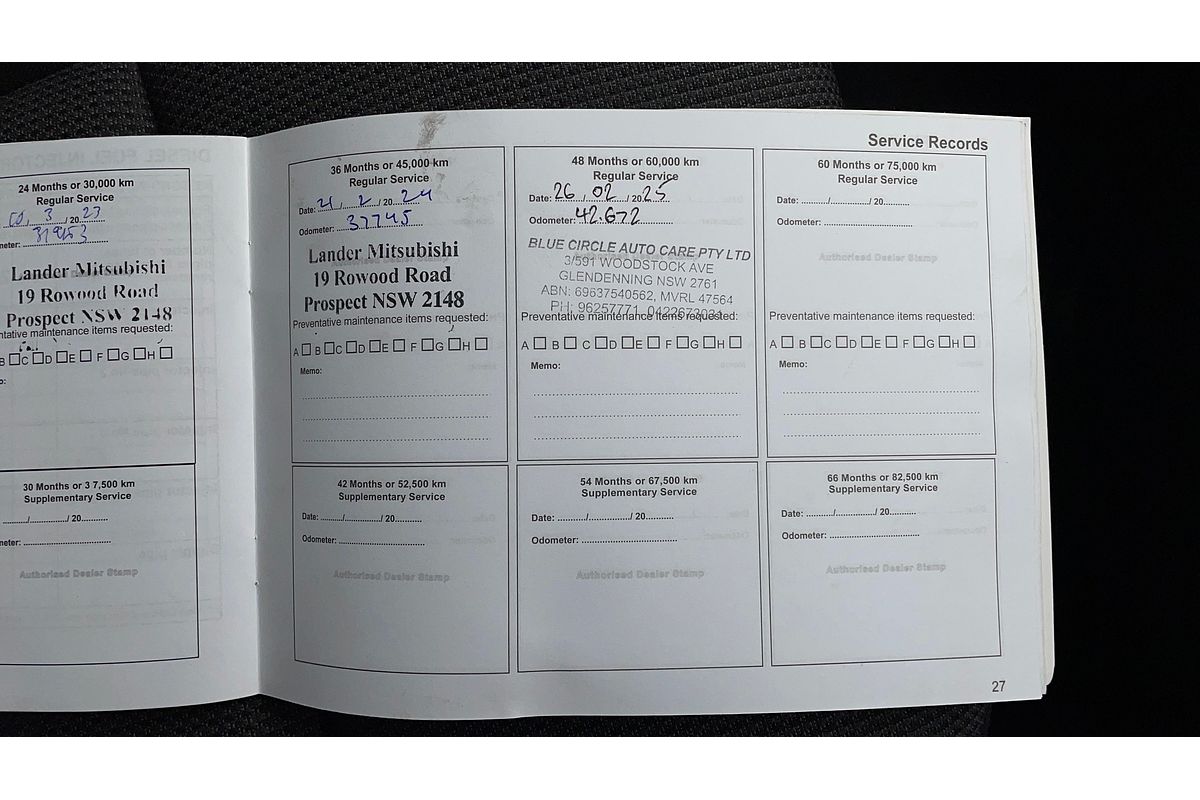 Service Records
24 Months or 30,000 km
Regular Service
3 / 20 23
meter:
Lander Mitsubishi
19 Rowood Road
Prospect NSW 2148
ntative maintenance items requested:
B C D E F G H
o:
36 Months or 45,000 km
Regular Service
Date: 21 / 2 / 20 24
Odometer: 37745
Lander Mitsubishi
19 Rowood Road
Prospect NSW 2148
Preventative maintenance items requested:
A B C D E F G H
Memo:
48 Months or 60,000 km
Regular Service
Date: 26 / 02 / 20 25
Odometer: 42.672
BLUE CIRCLE AUTO CARE PTY LTD
3/591 WOODSTOCK AVE
GLENDENNING NSW 2761
ABN: 69637540562, MVRL 47564
PH: 96257771,
Preventative maintenance items requested:
A B C D E F G H
Memo:
60 Months or 75,000 km
Regular Service
Date: ........../................/ 20...........
Odometer: ....................................
Authorised Dealer Stamp
Preventative maintenance items requested:
A B C D E F G H
Memo:
30 Months or 3 7,500 km
Supplementary Service
........../................/ 20...........
meter: ....................................
Authorised Dealer Stamp
42 Months or 52,500 km
Supplementary Service
Date: ........../................/ 20...........
Odometer: ....................................
Authorised Dealer Stamp
54 Months or 67,500 km
Supplementary Service
Date: ........../................/ 20...........
Odometer: ....................................
Authorised Dealer Stamp
66 Months or 82,500 km
Supplementary Service
Date: ........../................/ 20...........
Odometer: ....................................
Authorised Dealer Stamp
27